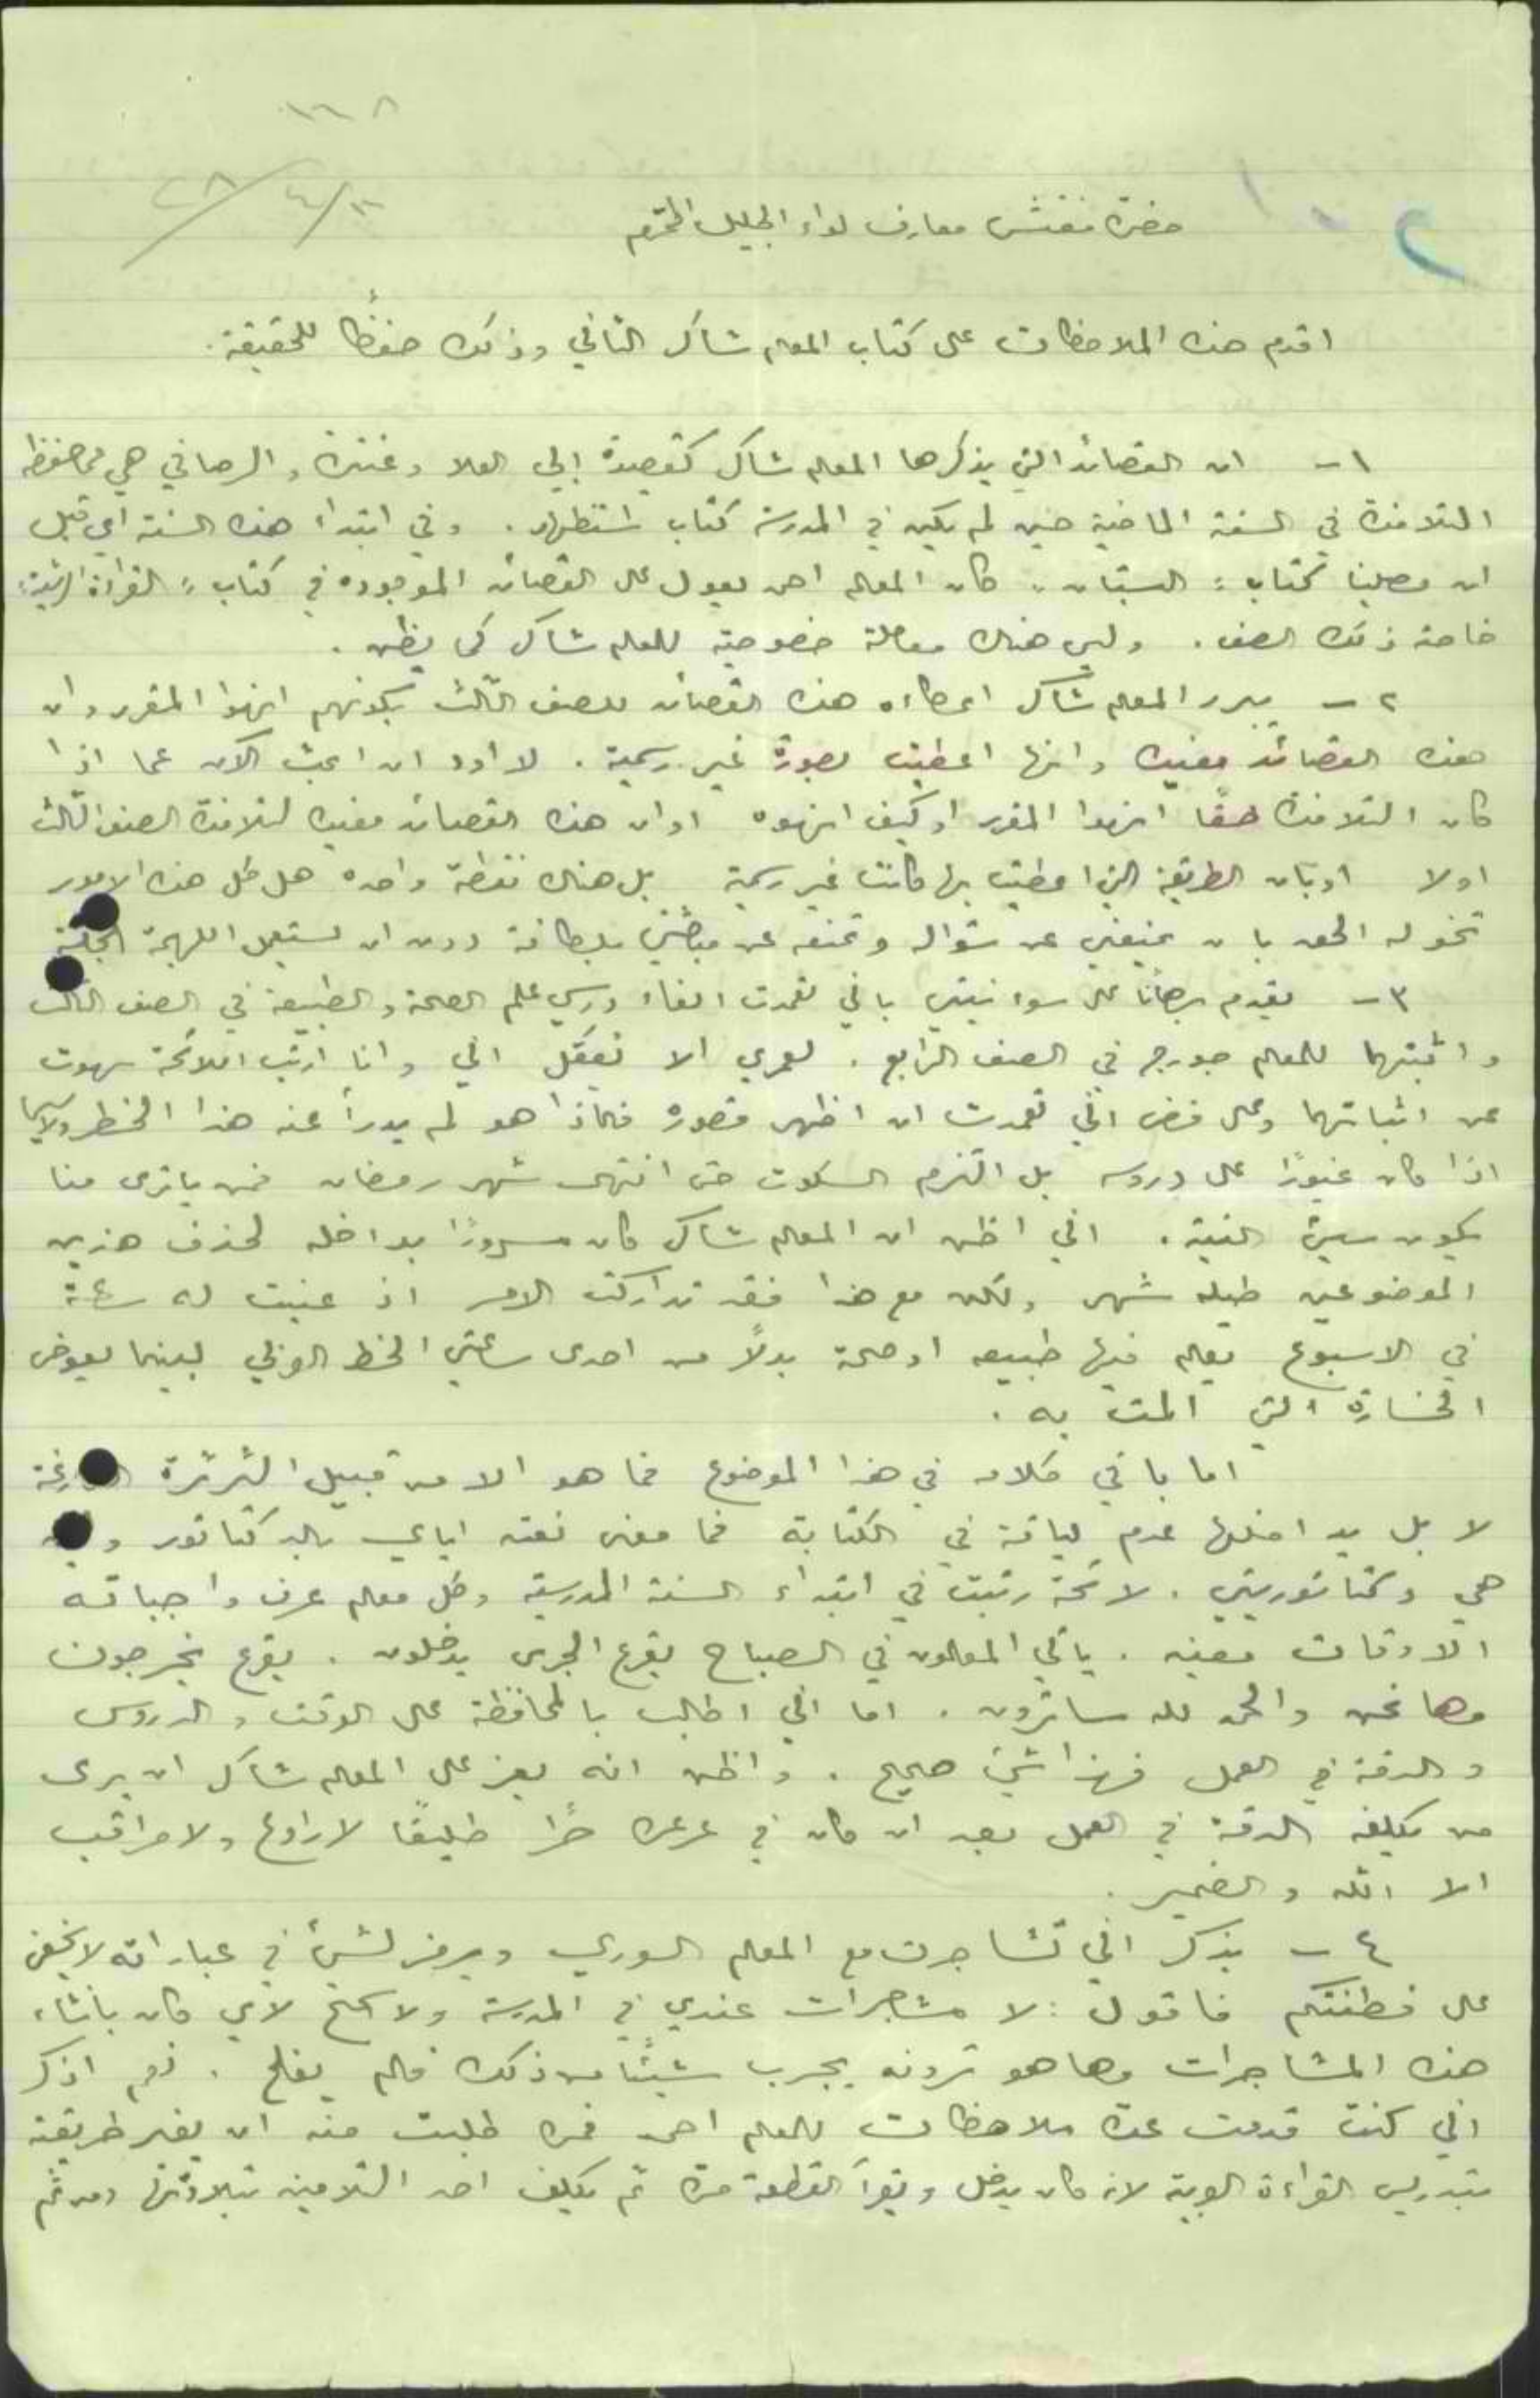 حضرة مفتش معارف لواء الجليل المحترم
اقدم هذه الملاحظات على كتاب المعلم شاكر الثاني وذلك حفظًا للحقيقة.
١ – ان القصائد التي يذكرها المعلم شاكر كقصيدة ابي العلا وعنترة والرصافي هي مما حفظه
التلامذة في السنة الماضية حين لم يكن في المدرسة كتاب استظهار. وفي ابتداء هذه السنة اي قبل
ان وصلنا كتاب "البستان" كان المعلم احمد يعول على القصائد الموجوده في كتاب "القراءة الرشيدة"
خاصة ذلك الصف. وليس هناك معاملة خصوصية للمعلم شاكر كما يظن.
٢ – يبرر المعلم شاكر اعطاءه هذه القصائد للصف الثالث بكونهم انهوا المقرر وان
هذه القصائد مفيده وانها اعطيت بصورة غير رسمية. لا اود ان ابحث الآن عما اذا
كان التلامذة حقًا انهوا المقرر او كيف انهوه او ان هذه القصائد مفيده لتلامذة الصف الثالث
اولا او بان الطريقة التي اعطيت بها كانت غير رسمية بل هناك نقطة واحده هل كل هذه الامور
تخوله الحق بان يمنعني عن سؤاله وتمنعه عن مجاوبتي بلطافة دون ان يستعمل اللهجة
٣ – يقدم برهانًا على سوء نيتي باني تعمدت الغاء درسي علم الصحة والطبيعة في الصف الثالث
واثبتهما للمعلم جورج في الصف الرابع. لعمري الا تعقل اني وانا ارتب اللائحة سهوت
عن اثباتهما وعلى فرض اني تعمدت ان اظهر قصوره فلماذا هو لم يدرأ عنه هذا الخطر ولاسيما
اذا كان غيورًا على دروسه بل التزم السكوت حتى انتهى شهر رمضان فمن يا ترى منا
يكون سيئ النية. اني اظن ان المعلم شاكر كان مسرورًا بداخله لحذف هذين
الموضوعين طيلة شهر ولكن مع هذا فقد تداركت الامر اذ عينت له ساعة
في الاسبوع يعلم فيها طبيعه او صحة بدلًا من احدى ساعتي الخط العربي لبينما يعوض
الخسارة التي المت به.
اما باقي كلامه في هذا الموضوع فما هو الا من قبيل الثرثرة
لا بل يداخلها عدم لياقة في الكتابة فما معنى نعته اياي بالدكتاتور
هي دكتاتوريتي. لائحة رتبت في ابتداء السنة المدرسية وكل معلم عرف واجباته
الاوقات معينه. يأتي المعلمون في الصباح يقرع الجرس يدخلون. يقرع يخرجون
وها نحن والحمد لله سائرون. اما اني اطالب بالمحافظة على الوقت والدروس
والدقة في العمل فهذا شيء صحيح. واظن انه يعز على المعلم شاكر ان يرى
من يكلفه الدقة في العمل بعد ان كان في عرعره حرًا طليقًا لا رادع ولا مراقب
الا الله والضمير.
٤ – يذكر اني تشاجرت مع المعلم السوري ويرمز لشيء في عباراته لا يخفى
على فطنتكم فاقول: لا مشاجرات عندي في المدرسة ولا اسمح لأي كان بانشاء
هذه المشاجرات وها هو ترونه يجرب شيئًا من ذلك فلم يفلح. نعم اذكر
اني كنت قدمت عدة ملاحظات للمعلم احمد فمره طلبت منه ان يغير طريقته
بتدريس القراءة العربية لانه كان يدخل ويقرأ القطعة مرة ثم يكلف احد التلاميذ بتلاوتها ومن ثم